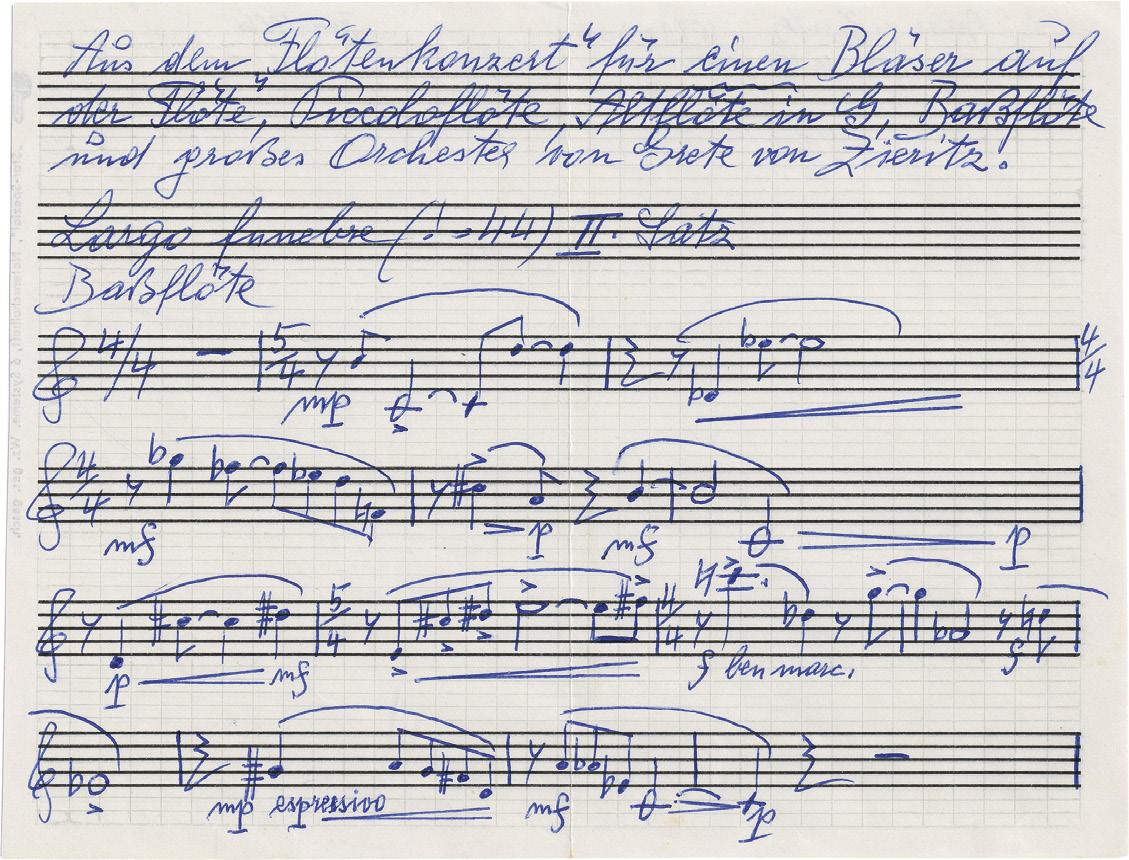 Aus dem "Flötenkonzert" für einen Bläser auf
der Flöte, Piccoloflöte, Altflöte in G, Baßflöte
und großes Orchester von Grete von Zieritz.
Largo funebre (♩=44) II. Satz
Baßflöte
4/4 5/4 mp 4/4
4/4 mf p mf p
p mf 5/4 4/4 f ben marc. f
mp espressivo mf p